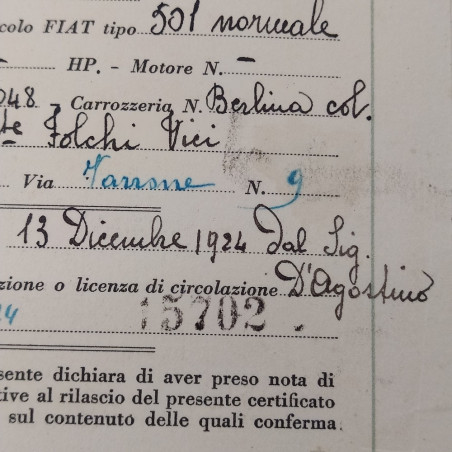 colo FIAT tipo 501 normale
- HP. - Motore N. -
048 - Carrozzeria N. Berlina col.
te Folchi Vici
Via Varrone N. 9
13 Dicembre 1924 dal Sig.
zione o licenza di circolazione D'Agostino
24 15702 -
sente dichiara di aver preso nota di
tive al rilascio del presente certificato
sul contenuto delle quali conferma.